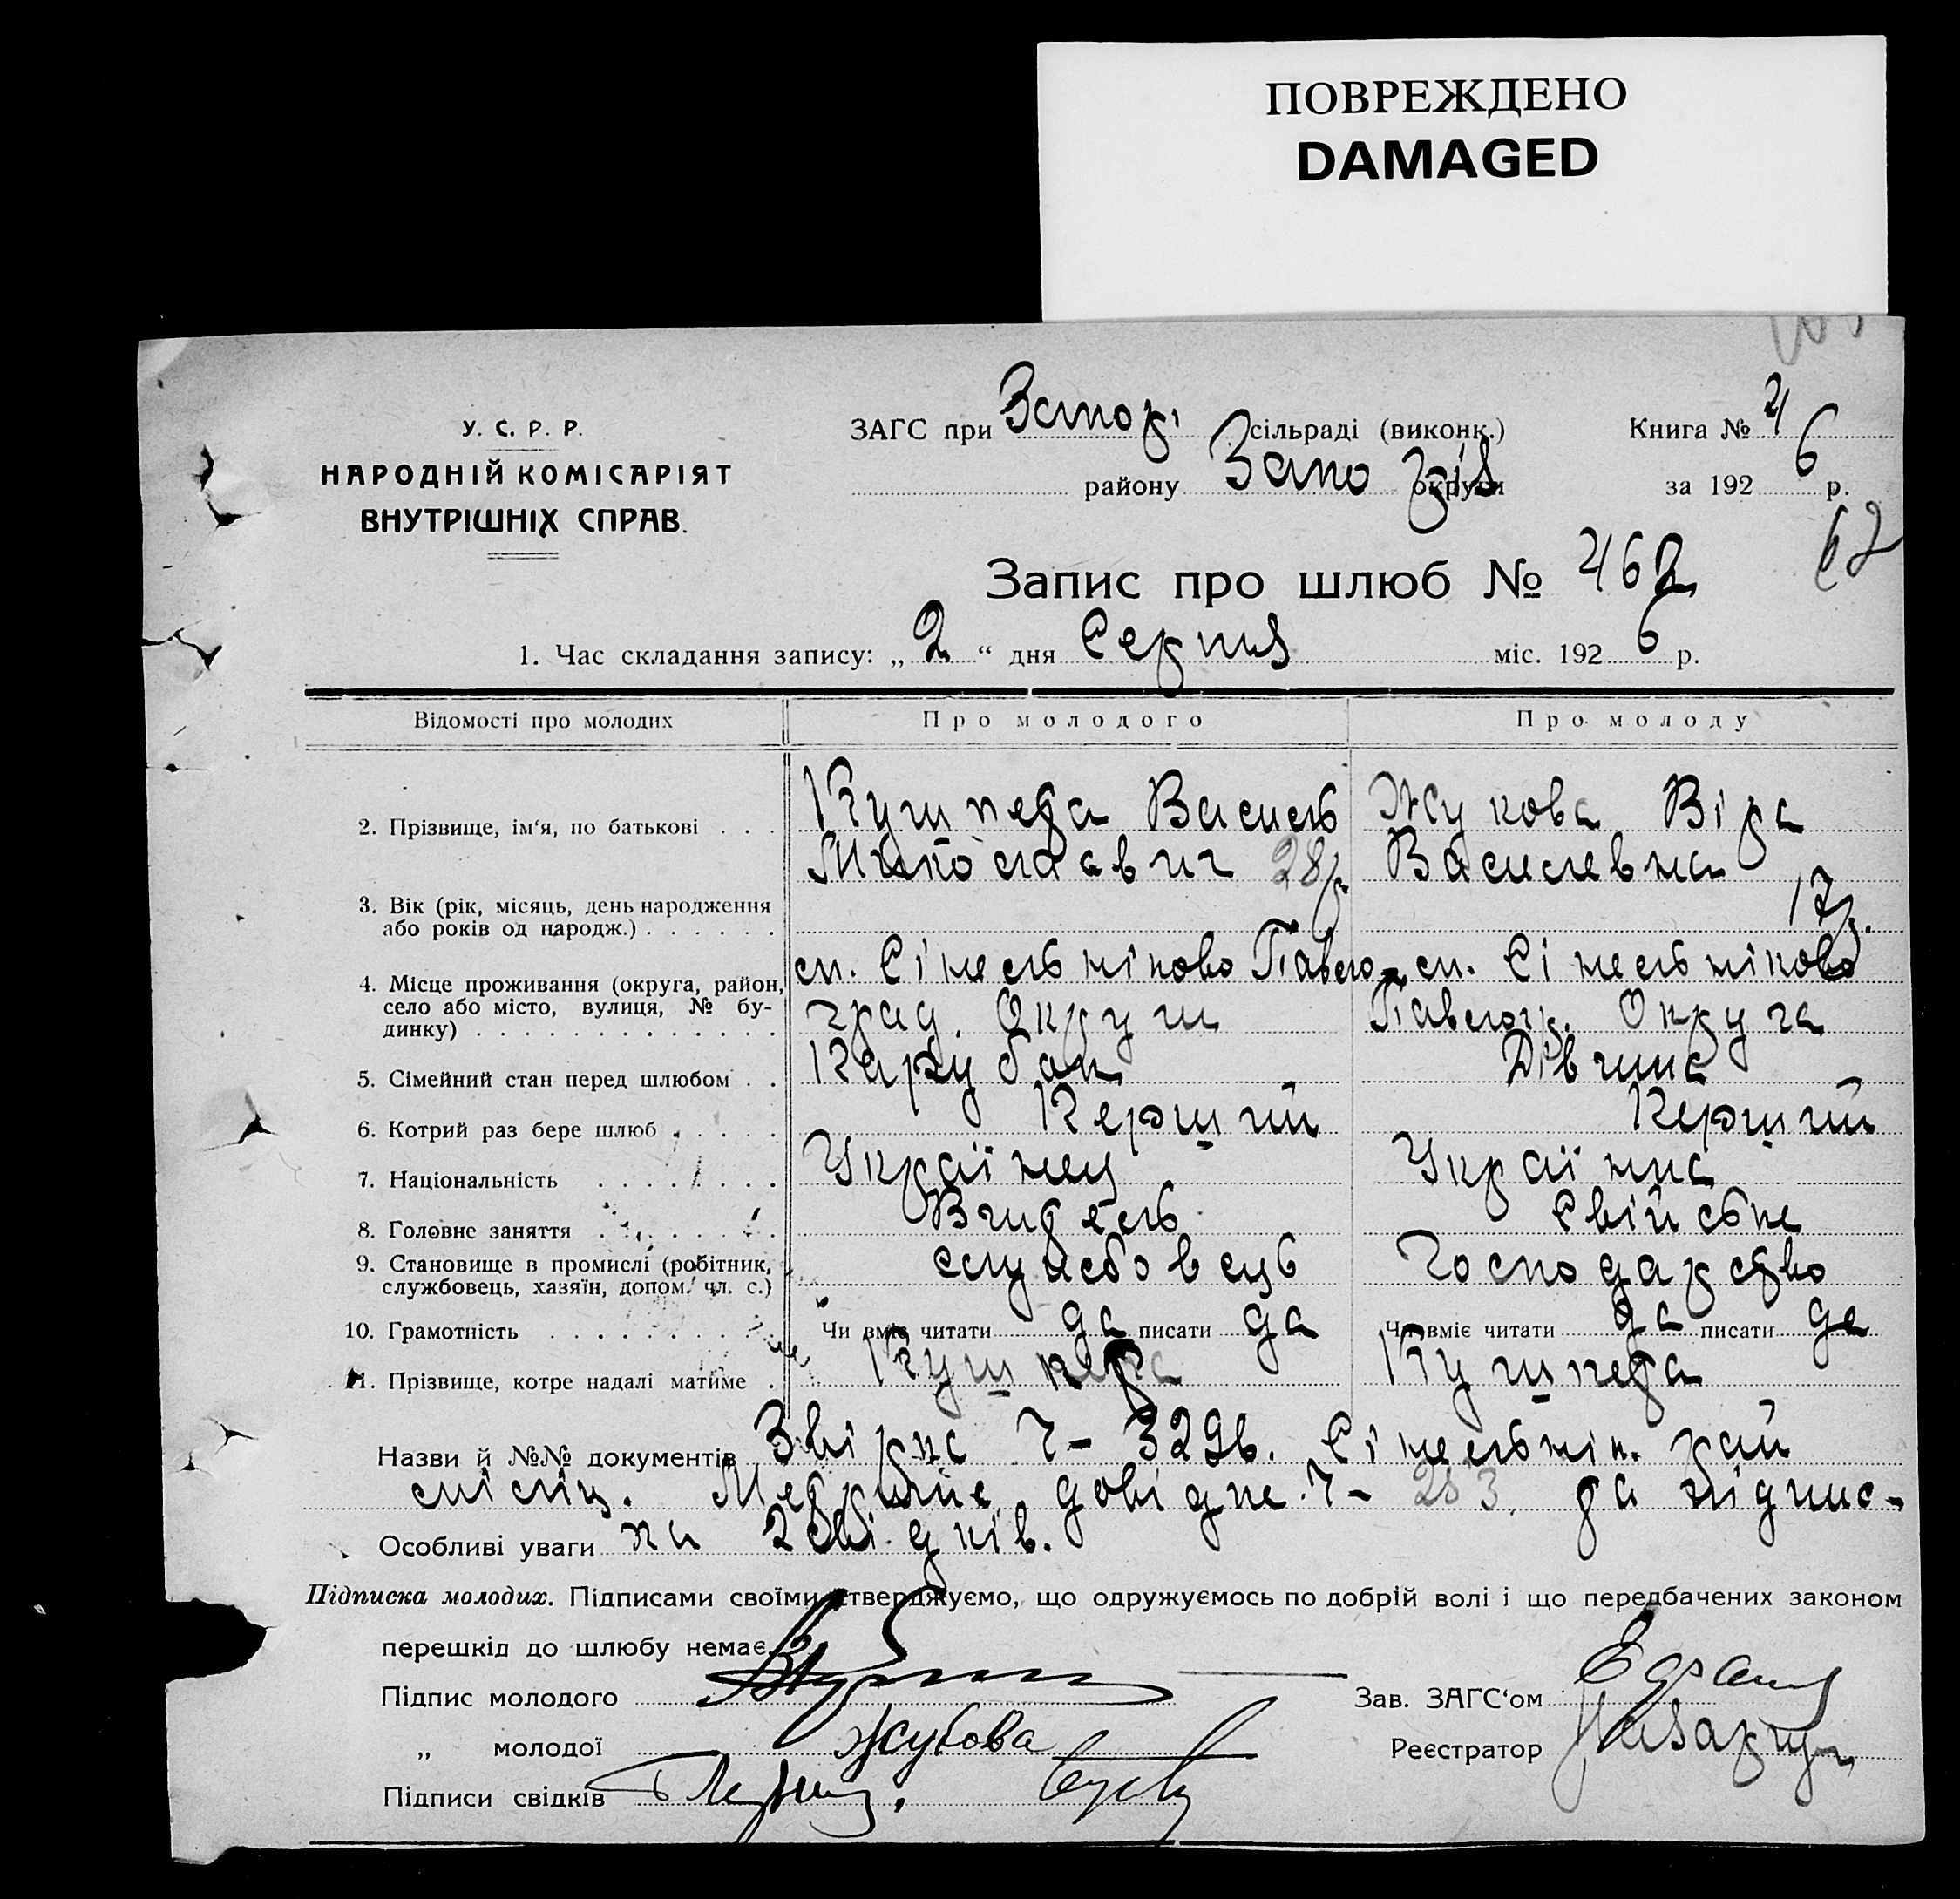 ПОВРЕЖДЕНО
DAMAGED
У. С. Р. Р.
НАРОДНІЙ КОМІСАРІЯТ
ВНУТРІШНІХ СПРАВ.
ЗАГС при Запор. сільраді (виконк.)
району Запоріз округи
Книга № 4
за 1926 р.
62
Запис про шлюб № 462
1. Час складання запису: „ 2 “ дня Серпня міс. 1926 р.
Відомості про молодих Про молодого Про молоду
2. Прізвище, ім'я, по батькові . . . Кушпета Василь Жукова Віра
Миколаавич 28р Василевна
3. Вік (рік, місяць, день народження 17р.
або років од народж.) . . . . . .
4. Місце проживання (округа, район, ст. Сінельніково Павло- ст. Сінельніково
село або місто, вулиця, № бу- град. Округи Павлогр. Округа
динку) . . . . . . . . . . . . .
5. Сімейний стан перед шлюбом . . Парубок Дівчина
6. Котрий раз бере шлюб . . . . . Перший Перший
7. Національність . . . . . . . . Українец Украінка
8. Головне заняття . . . . . . . . Вчитель Свійське
9. Становище в промислі (робітник, службовець Господарство
службовець, хазяїн, допом. чл. с.)
10. Грамотність . . . . . . . . . Чи вміє читати да писати да Чи вміє читати да писати да
11. Прізвище, котре надалі матиме . Кушпета Кушпета
Назви й №№ документів Звірка Ч- 329 Сінельнік. рай
місц. Метричне довідка Ч- та підпис-
Особливі уваги ка 2 свідків.
Підписка молодих. Підписами своїми стверджуємо, що одружуємось по добрій волі і що передбачених законом
перешкід до шлюбу немає.
Підпис молодого Зав. ЗАГС'ом
„ молодої Жукова Реєстратор
Підписи свідків